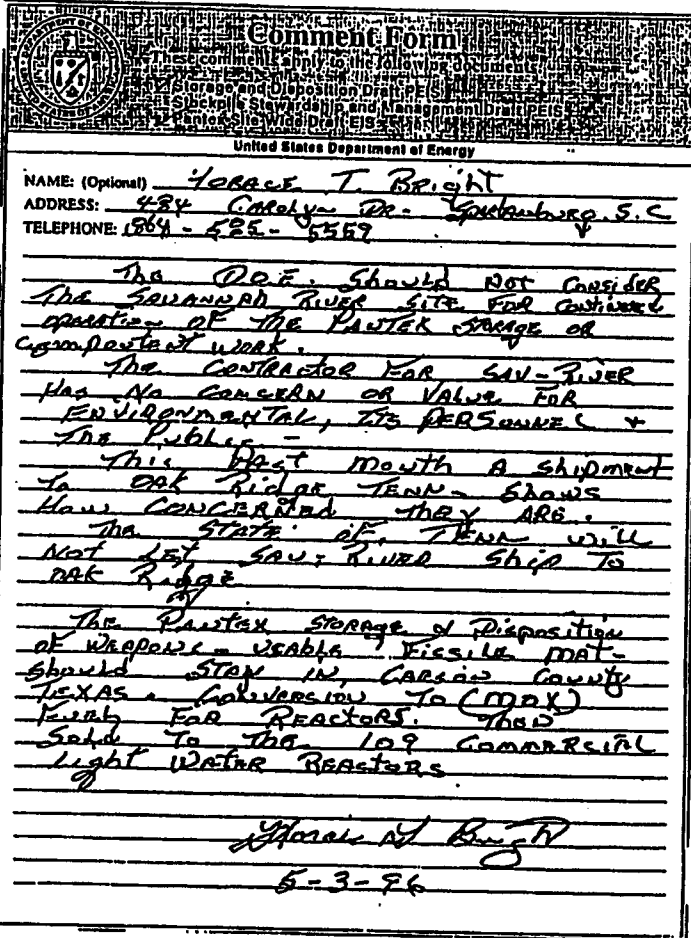 Comment Form
These comments apply to the following documents:
Storage and Disposition Draft PEIS
Stockpile Stewardship and Management Draft PEIS
Pantex Site Wide Draft EIS
United States Department of Energy
NAME: (Optional) Horace T. Bright
ADDRESS: 484 Carolyn Dr. Spartanburg. S.C
TELEPHONE: 864 - 585 - 5559
The D.O.E. Should Not Consider
The Savannah River Site For Continued
operation of The Pantex Storage or
component work.
The Contractor For Sav-River
Has No Concern or Value For
Environmental, Its Personnel &
The Public -
This Past month A shipment
To Oak Ridge Tenn - Shows
How Concerned They Are.
The State of, Tenn will
Not Let Sav-River Ship To
Oak Ridge
The Pantex Storage & Disposition
of Weapons - Usable Fissile Mat-
should Stay In, Carson County
Texas. Conversion To (mox)
For Reactors. Then
Sold To The 109 Commercial
Light Water Reactors
Horace T Bright
5-3-96